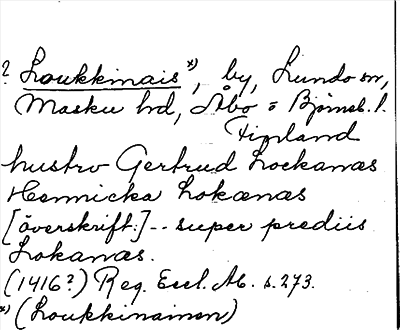 ? Loukkinais *), by, Lundo sn,
Masku hd, Åbo o Björneb. l.
Finland
hustro Gertrud Lockanæs
Hennicka Lokænæs
[överskrift:] -- super prediis
Lokanæs.
(1416?) Reg. Eccl. Ab. s. 273.
*) (Loukkinainen)